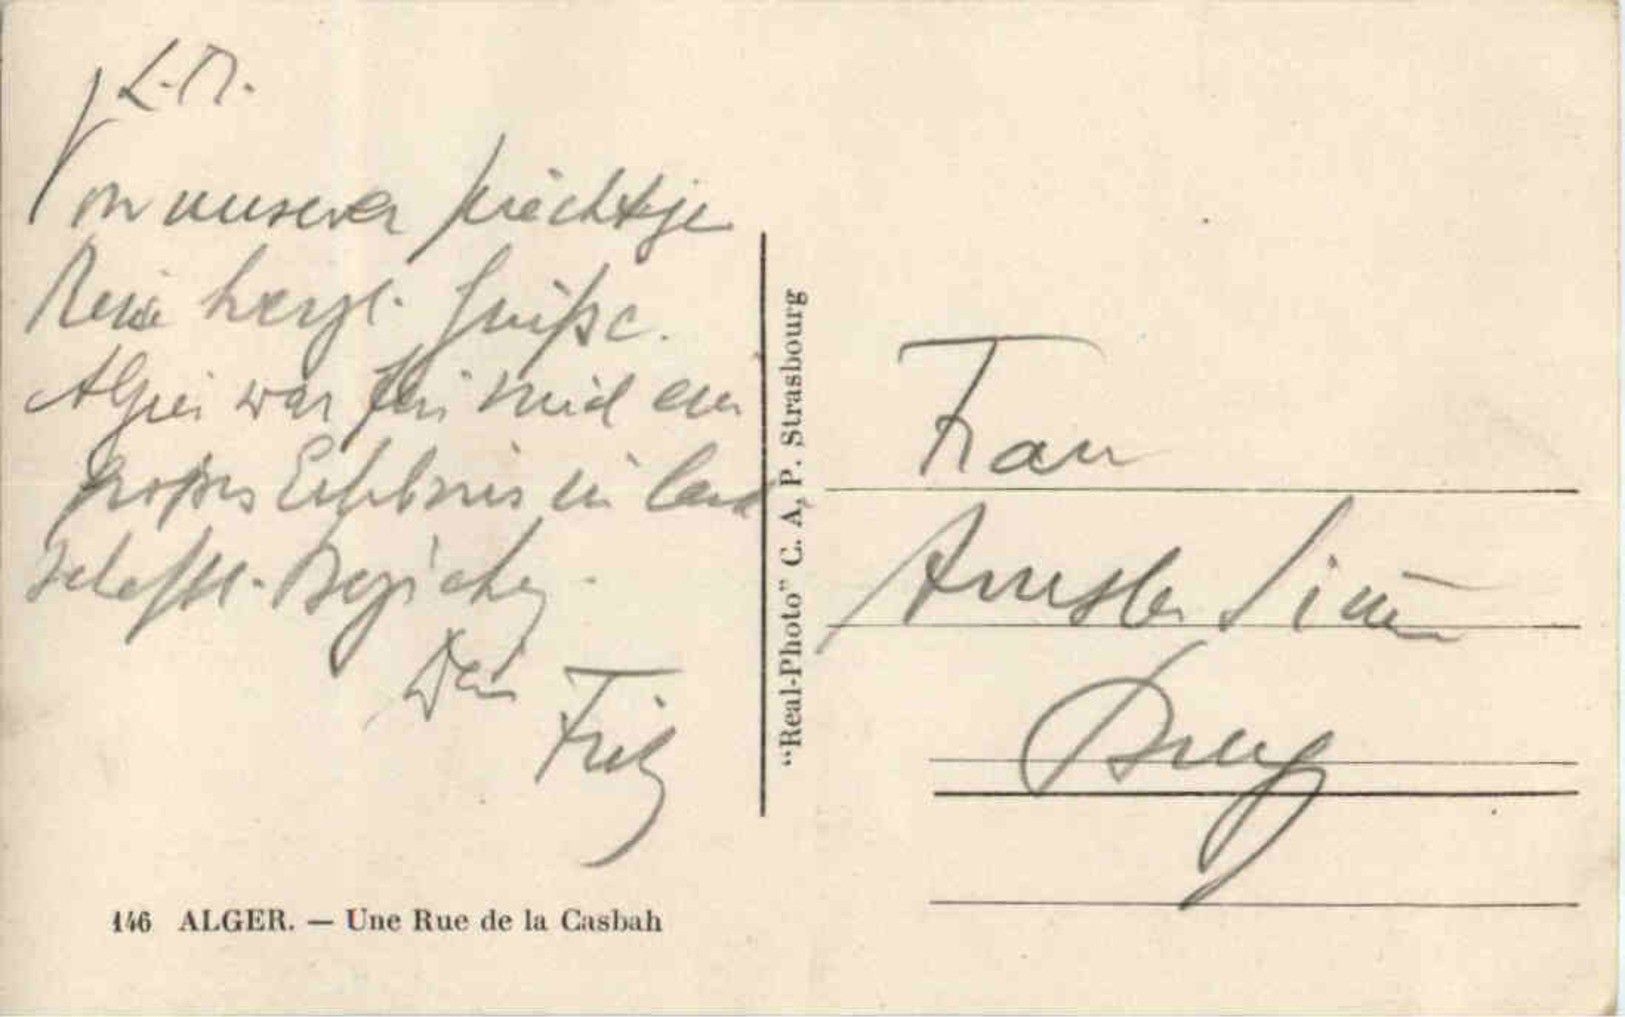 L. M.
Von unserer prächtigen
Reise herzl. Grüsse.
Algier war für mich ein
grosses Erlebnis in land
schaftl. Beziehg.
Dein
Fritz
146 ALGER. — Une Rue de la Casbah
"Real-Photo" C. A. P. Strasbourg
Frau
Amsler
Brugg